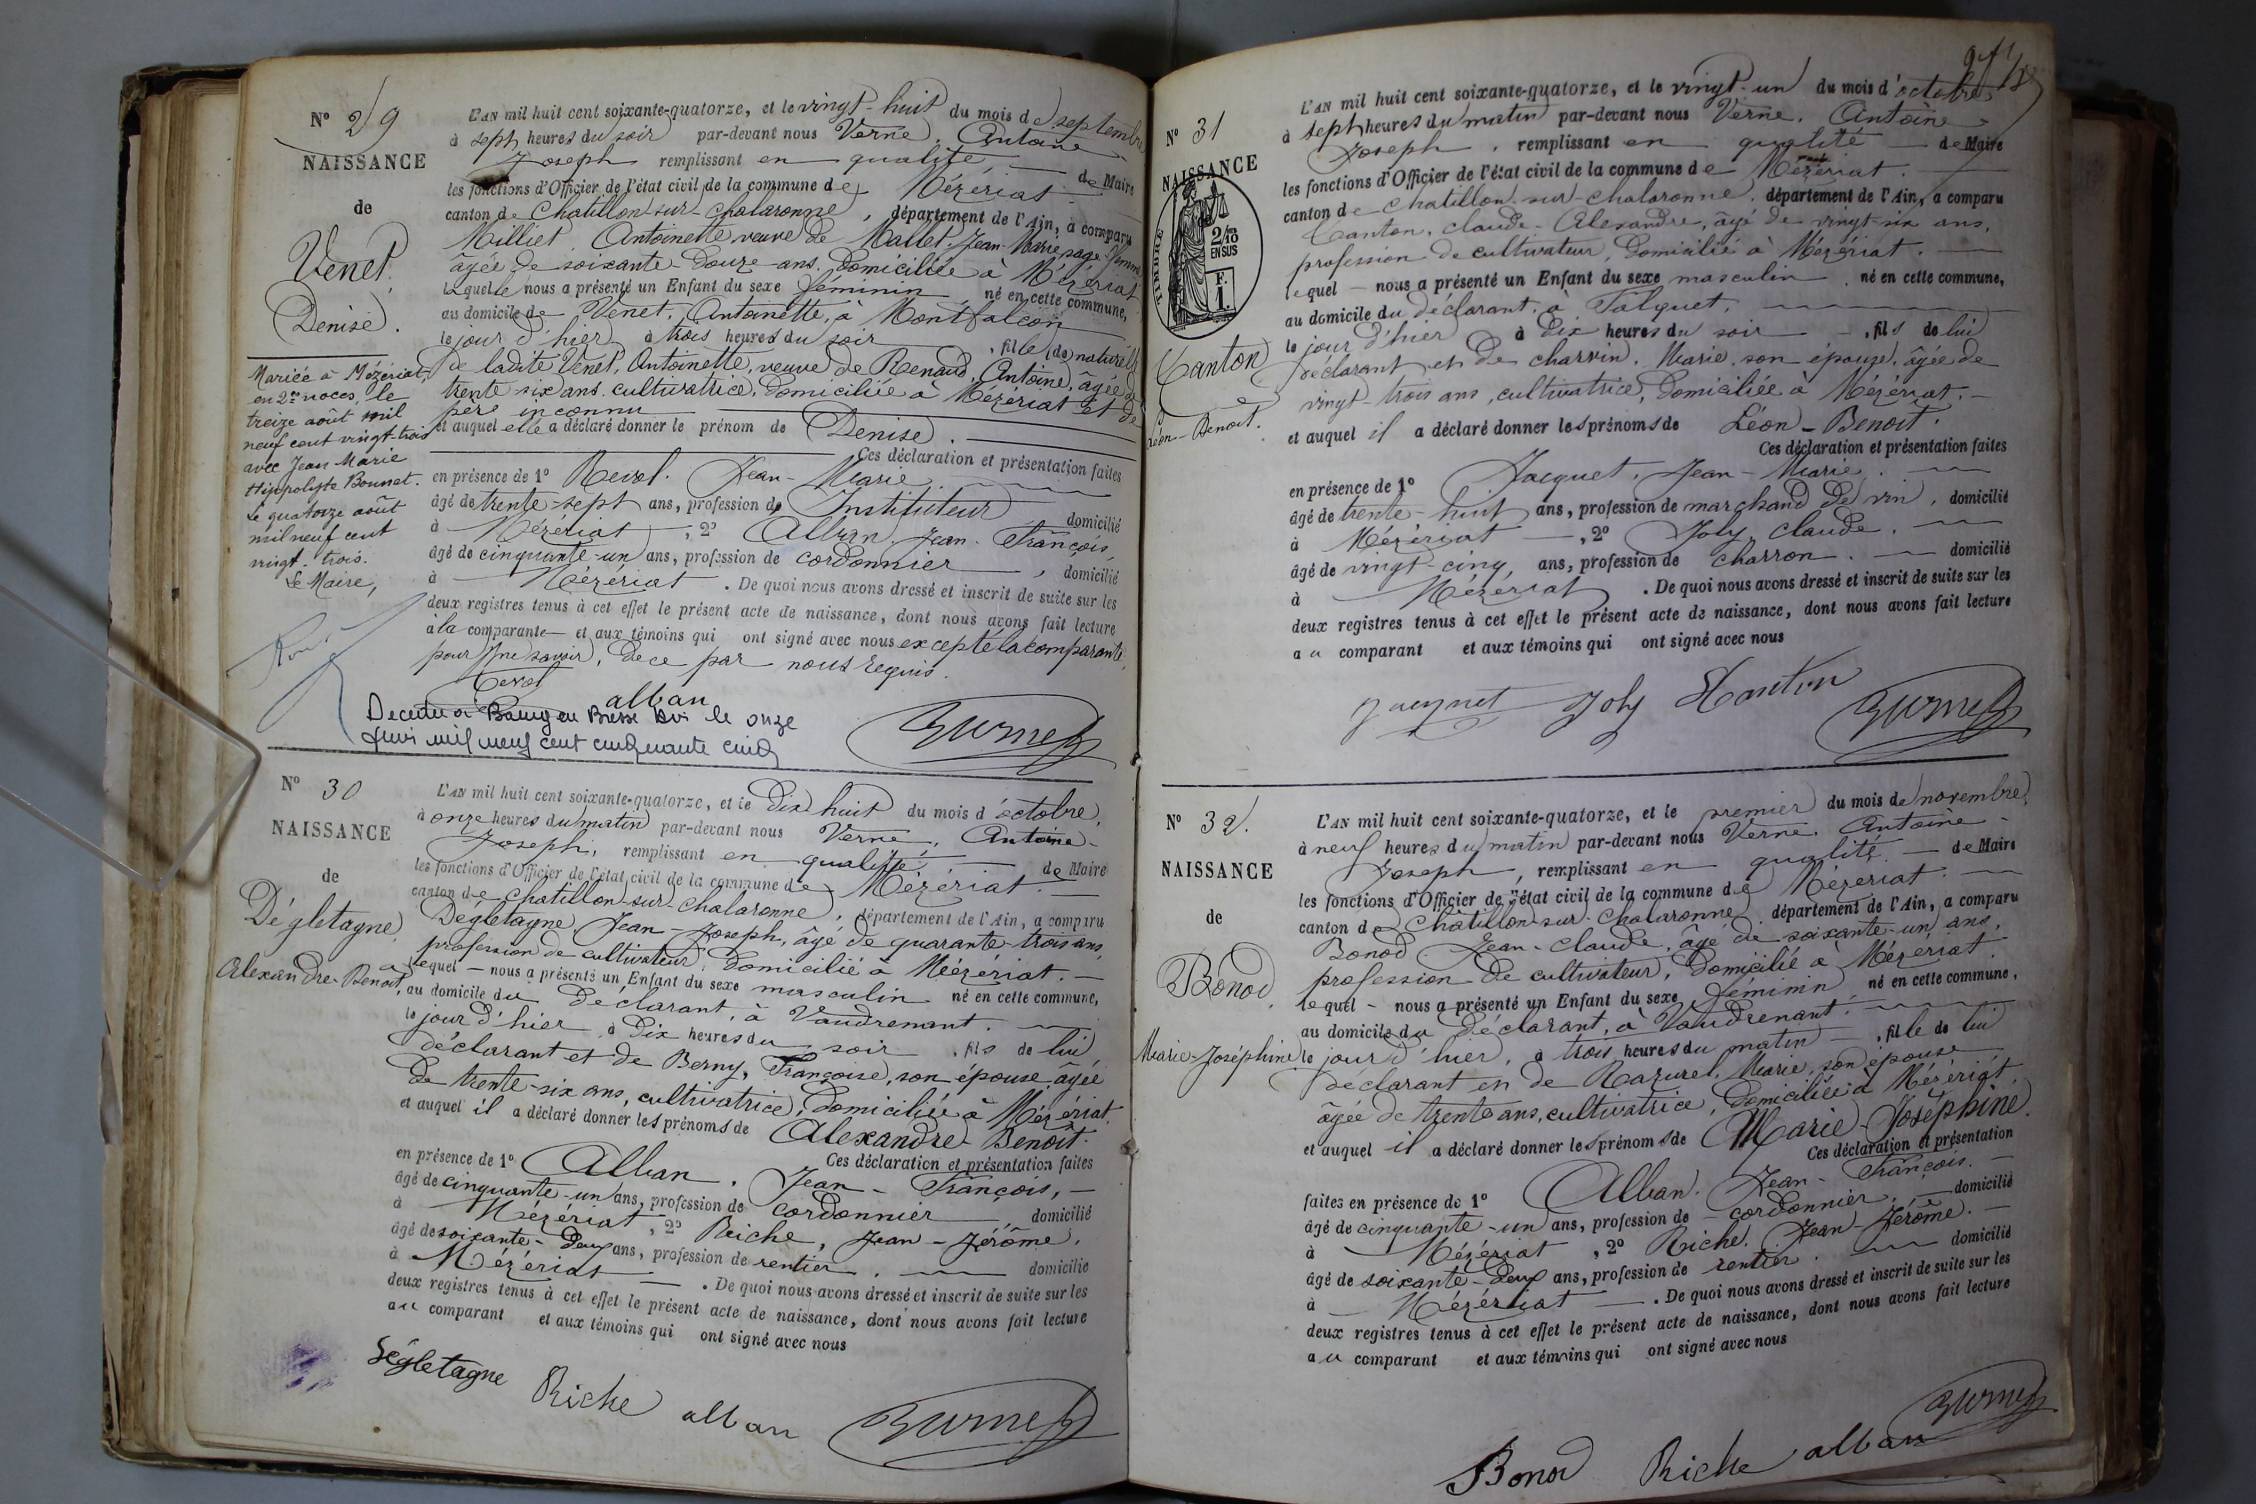 N° 29
NAISSANCE
de
Venet,
Denise.
Mariée à Mézériat,
en 2es noces, le
treize août mil
neuf cent vingt-trois
avec Jean Marie
Hippolyte Bonnet.
Le quatorze août
mil neuf cent
vingt-trois.
Le Maire,
L'AN mil huit cent soixante-quatorze, et le vingt-huit du mois de septembre
à sept heures du soir par-devant nous Verne, Antoine
Joseph remplissant en qualité de Maire
les fonctions d'Officier de l'état civil de la commune de Mézériat
canton de Chatillon-sur-chalaronne, département de l'Ain, a comparu
Milliet Antoinette veuve de Mallet Jean-Marie, sage-femme
âgée de soixante-douze ans, domiciliée à Mézériat
laquelle nous a présenté un Enfant du sexe féminin né en cette commune,
au domicile de Venet, Antoinette, à Montfalcon
le jour d'hier à trois heures du soir, fille (de) naturelle
de ladite Venet, Antoinette, veuve de Renaud, Antoine, âgée de
trente six ans, cultivatrice, domiciliée à Mézériat et de
père inconnu
et auquel elle a déclaré donner le prénom de Denise.
Ces déclaration et présentation faites
en présence de 1° Revol, Jean-Marie
âgé de trente-sept ans, profession de Instituteur domicilié
à Mézériat, 2° Alban, Jean-François,
âgé de cinquante-un ans, profession de cordonnier, domicilié
à Mézériat. De quoi nous avons dressé et inscrit de suite sur les
deux registres tenus à cet effet le présent acte de naissance, dont nous avons fait lecture
à la comparante et aux témoins qui ont signé avec nous excepté la comparante,
pour ne savoir, de ce par nous requis.
Revol alban
Decédée à Bourg en Bresse Ain le onze
juin mil neuf cent cinquante cinq
N° 30
NAISSANCE
de
Dégletagne,
Alexandre-Benoit,
L'AN mil huit cent soixante-quatorze, et le dix huit du mois d'octobre,
à onze heures du matin par-devant nous Verne, Antoine-
Joseph, remplissant en qualité de Maire
les fonctions d'Officier de l'état civil de la commune de Mézériat.
canton de chatillon-sur-chalaronne, département de l'Ain, a comparu
Dégletagne Jean-Joseph, âgé de quarante-trois ans,
profession de cultivateur, domicilié à Mézériat.
lequel nous a présenté un Enfant du sexe masculin né en cette commune,
au domicile du déclarant, à Vaudrenant.
le jour d'hier à dix heures du soir, fils de lui
déclarant et de Berny, Françoise, son épouse, âgée
de trente-six ans, cultivatrice, domiciliée à Mézériat.
et auquel il a déclaré donner les prénoms de Alexandre-Benoît.
Ces déclaration et présentation faites
en présence de 1° Alban, Jean-François,
âgé de cinquante-un ans, profession de cordonnier domicilié
à Mézériat, 2° Riche, Jean-Jérôme,
âgé de soixante-deux ans, profession de rentier. domicilié
à Mézériat. De quoi nous avons dressé et inscrit de suite sur les
deux registres tenus à cet effet le présent acte de naissance, dont nous avons fait lecture
au comparant et aux témoins qui ont signé avec nous
Dégletagne Riche alban
N° 31
NAISSANCE
TIMBRE
2/10
EN SUS
F.
1.
Canton
Léon-Benoit.
L'AN mil huit cent soixante-quatorze, et le vingt-un du mois d'octobre
à sept heures du matin par-devant nous Verne, Antoine
Joseph, remplissant en qualité de Maire
les fonctions d'Officier de l'état civil de la commune de Mézériat.
canton de chatillon-sur-chalaronne, département de l'Ain, a comparu
Canton, claude-Alexandre, âgé de vingt-six ans,
profession de cultivateur, domicilié à Mézériat.
lequel nous a présenté un Enfant du sexe masculin né en cette commune,
au domicile du déclarant, à
le jour d'hier à dix heures du soir, fils de lui
déclarant et de charvin, Marie, son épouse, âgée de
vingt-trois ans, cultivatrice, domiciliée à Mézériat.
et auquel il a déclaré donner les prénoms de Léon-Benoit.
Ces déclaration et présentation faites
en présence de 1° Jacquet, Jean-Marie.
âgé de trente-huit ans, profession de marchand de vin, domicilié
à Mézériat, 2° Joly, claude.
âgé de vingt-cinq ans, profession de charron. domicilié
à Mézériat. De quoi nous avons dressé et inscrit de suite sur les
deux registres tenus à cet effet le présent acte de naissance, dont nous avons fait lecture
au comparant et aux témoins qui ont signé avec nous
Jacquet Joly Canton
N° 32.
NAISSANCE
de
Bonod,
Marie-Joséphine
L'AN mil huit cent soixante-quatorze, et le premier du mois de novembre,
à neuf heures du matin par-devant nous Verne, Antoine-
Joseph, remplissant en qualité de Maire
les fonctions d'Officier de l'état civil de la commune de Mézériat.
canton de Châtillon-sur-chalaronne, département de l'Ain, a comparu
Bonod Jean-claude, âgé de soixante-un ans,
profession de cultivateur, domicilié à Mézériat.
lequel nous a présenté un Enfant du sexe féminin, né en cette commune,
au domicile du déclarant, à Vaudrenant.
le jour d'hier, à trois heures du matin, fille de lui
déclarant et de Razurel, Marie, son épouse
âgée de trente ans, cultivatrice, domiciliée à Mézériat,
et auquel il a déclaré donner les prénoms de Marie-Joséphine.
Ces déclaration et présentation
faites en présence de 1° Alban, Jean-François.
âgé de cinquante-un ans, profession de cordonnier, domicilié
à Mézériat, 2° Riche, Jean-Jérôme.
âgé de soixante-deux ans, profession de rentier. domicilié
à Mézériat. De quoi nous avons dressé et inscrit de suite sur les
deux registres tenus à cet effet le présent acte de naissance, dont nous avons fait lecture
au comparant et aux témoins qui ont signé avec nous
Bonod Riche alban